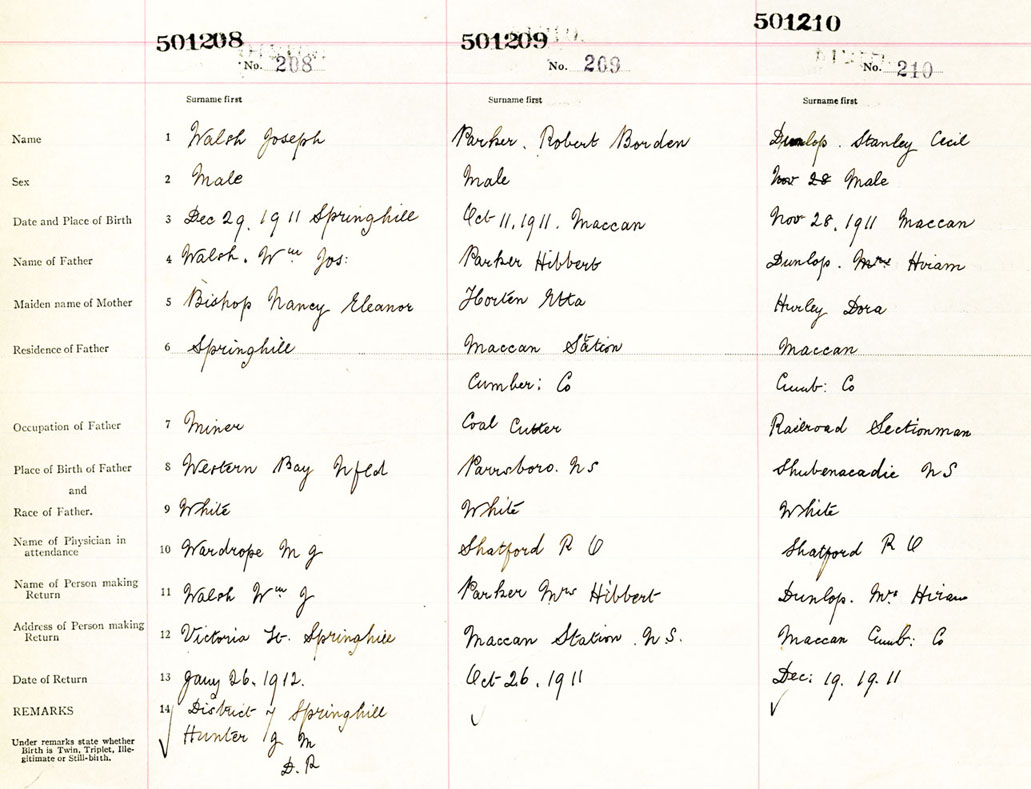 501208
501209
501210
No. 208
No. 209
No. 210
Surname first
Surname first
Surname first
Name 1 Walsh Joseph Parker. Robert Borden Dunlop. Stanley Cecil
Sex 2 Male Male Nov 28 Male
Date and Place of Birth 3 Dec 29, 1911 Springhill Oct 11, 1911. Maccan Nov 28, 1911 Maccan
Name of Father 4 Walsh. Wm Jos: Parker Hibbert Dunlop. Mrs Hiram
Maiden name of Mother 5 Bishop Nancy Eleanor Horten Etta Hurley Dora
Residence of Father 6 Springhill Maccan Sation Maccan
Cumber: Co Cumb: Co
Occupation of Father 7 Miner Coal Cutter Railroad Sectionman
Place of Birth of Father 8 Western Bay Nfld Parrsboro. NS Shubenacadie NS
and
Race of Father. 9 White White White
Name of Physician in
attendance 10 Wardrope M J Shatford R O Shatford R O
Name of Person making
Return 11 Walsh Wm J Parker Mrs Hibbert Dunlop. Mrs Hiram
Address of Person making
Return 12 Victoria St. Springhill Maccan Station. N.S. Maccan Cumb: Co
Date of Return 13 Jany 26, 1912. Oct 26, 1911 Dec: 19. 1911
REMARKS 14 District of Springhill
Hunter J M
D. R
Under remarks state whether
Birth is Twin, Triplet, Ille-
gitimate or Still-birth.